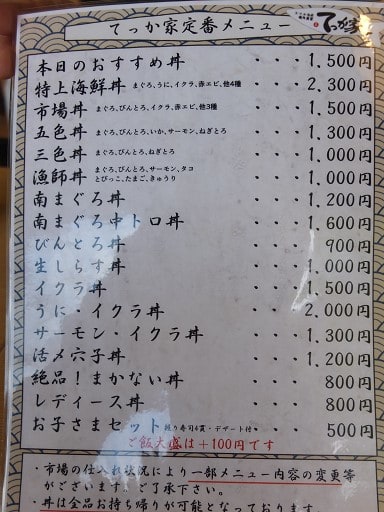 てっか家定番メニュー
てっか家
本日のおすすめ丼 ・・・ 1,500円
特上海鮮丼 まぐろ、うに、イクラ、赤エビ、他4種 ・・・ 2,300円
市場丼 まぐろ、びんとろ、イクラ、赤エビ、他3種 ・・・ 1,500円
五色丼 まぐろ、びんとろ、いか、サーモン、ねぎとろ ・・・ 1,300円
三色丼 まぐろ、びんとろ、ねぎとろ ・・・ 1,000円
漁師丼 まぐろ、びんとろ、サーモン、タコ とびっこ、たまご、きゅうり ・・・ 1,000円
南まぐろ丼 ・・・ 1,200円
南まぐろ中トロ丼 ・・・ 1,600円
びんとろ丼 ・・・ 900円
生しらす丼 ・・・ 1,000円
イクラ丼 ・・・ 1,500円
うに・イクラ丼 ・・・ 2,000円
サーモン・イクラ丼 ・・・ 1,300円
活〆穴子丼 ・・・ 1,200円
絶品!まかない丼 ・・・ 800円
レディース丼 ・・・ 800円
お子さまセット 握り寿司4貫・デザート付 ・・・ 500円
ご飯大盛は+100円です
・市場の仕入れ状況により一部メニュー内容の変更等
がございます。ご了承下さい。
・丼は全品お持ち帰りが可能となっております。